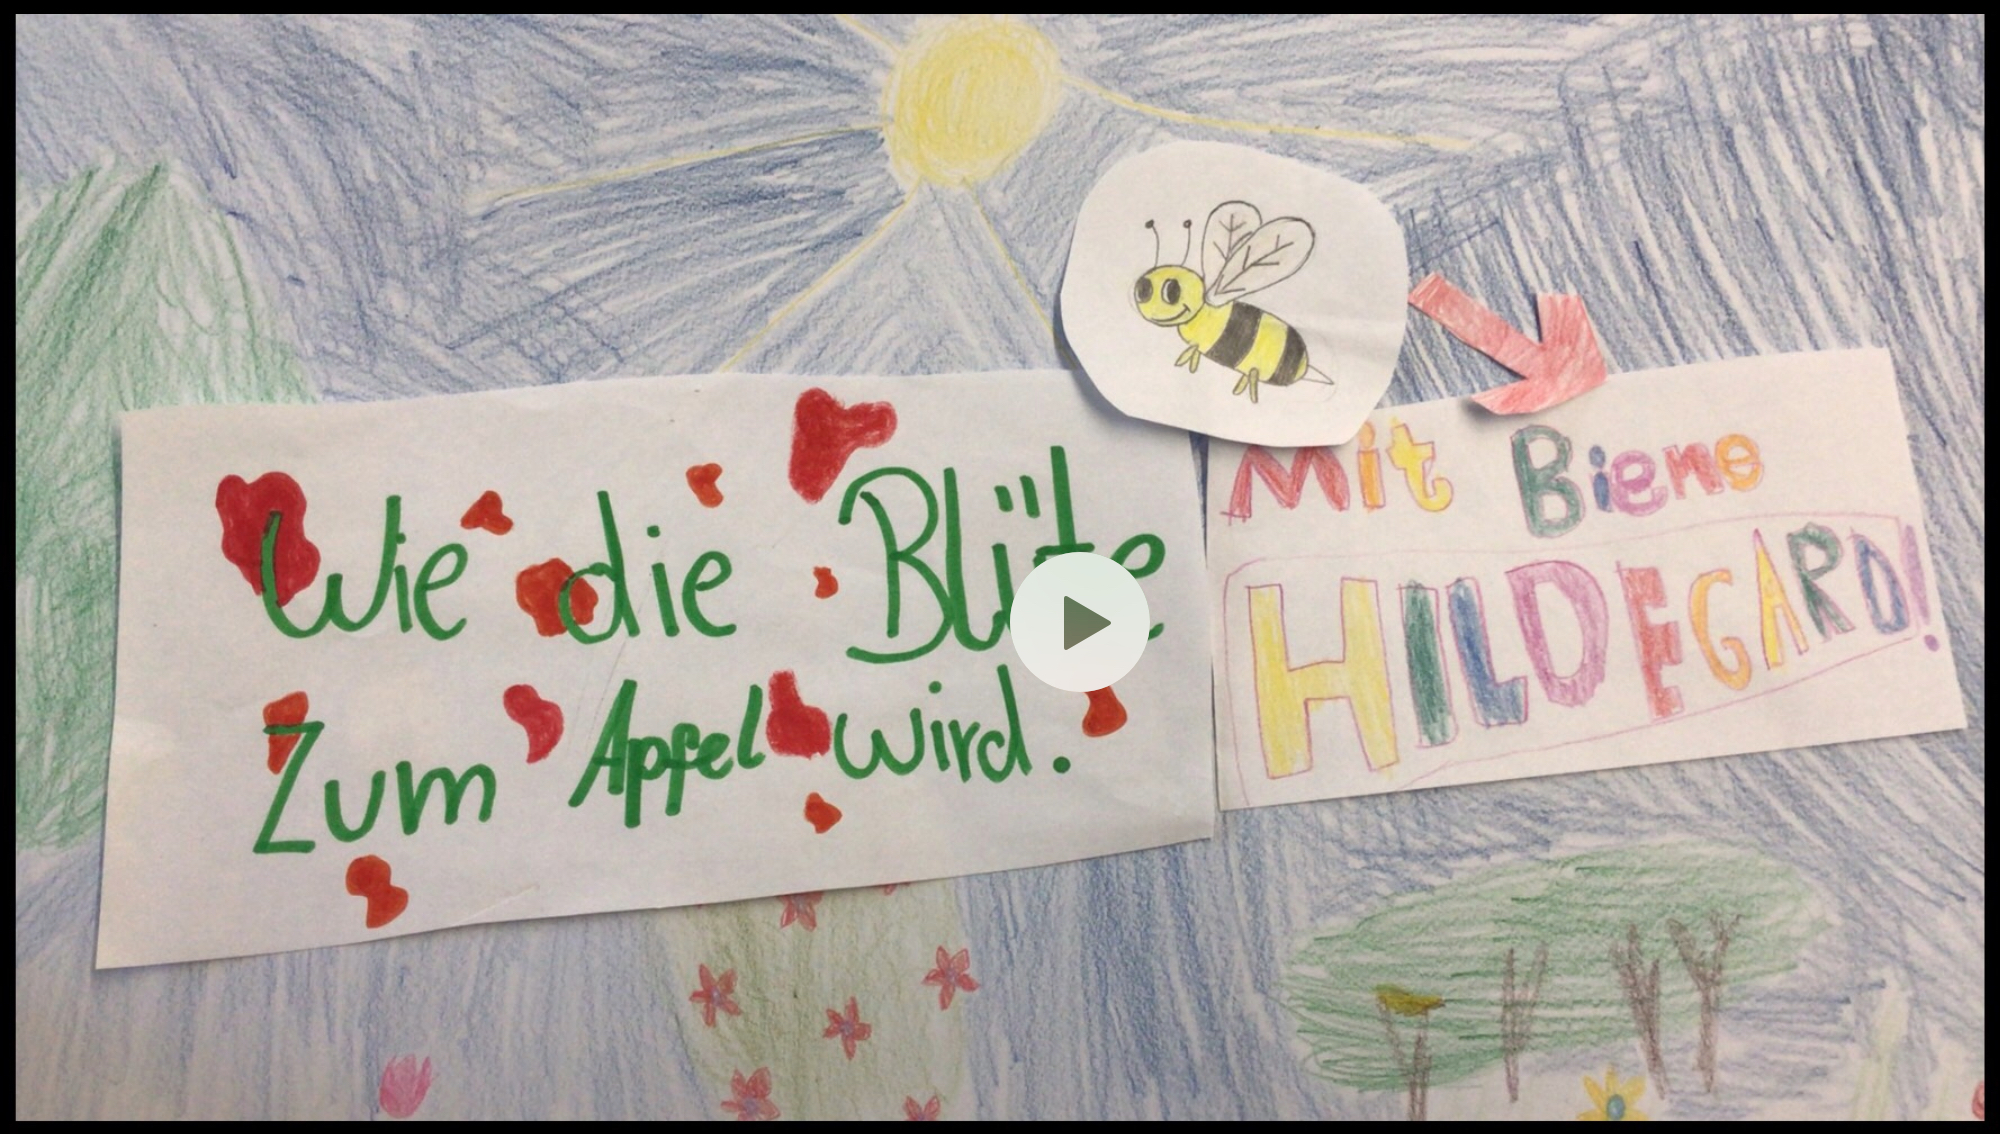 Wie die Blüte
Zum Apfel wird.
Mit Biene
HILDEGARD!